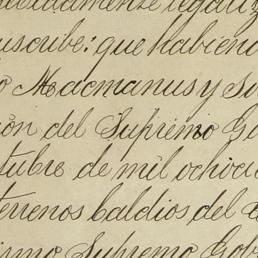 legaliz
uscribe: que habiend
o Macmanus y S
ón del Supremo Go
tubre de mil ochoci
terrenos baldios del
ismo Supremo Gob